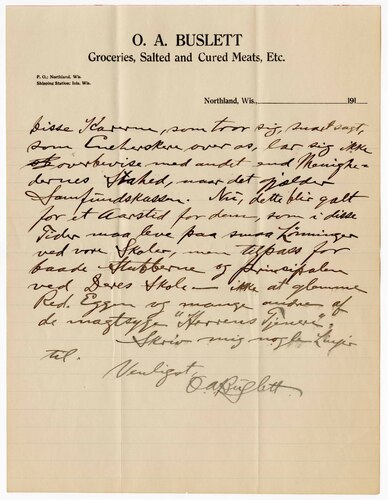 O. A. BUSLETT
Groceries, Salted and Cured Meats, Etc.
P. O.; Northland, Wis.
Shipping Station; Iola, Wis.
Northland, Wis., 191
Disse Karerne, som tror sig, snart sagt,
som Eneherskere over os, lar sig ikke
overbevise med andet end Menighe-
dernes Stahed, naar det gjælder
Samfundskassen. Nu, dette blir galt
for et Aarstid for dem, som i disse
Tider maa leve paa smaa Lønninger
ved vore Skoler, men tilpass for
baade og principalen
ved Deres Skole — ikke at glemme
Red. Eggen og mange andre af
de magtsyge "Herrens Tjenere".
Skriv mig nogle Linjer
til.
Venligst,
O A Buslett.